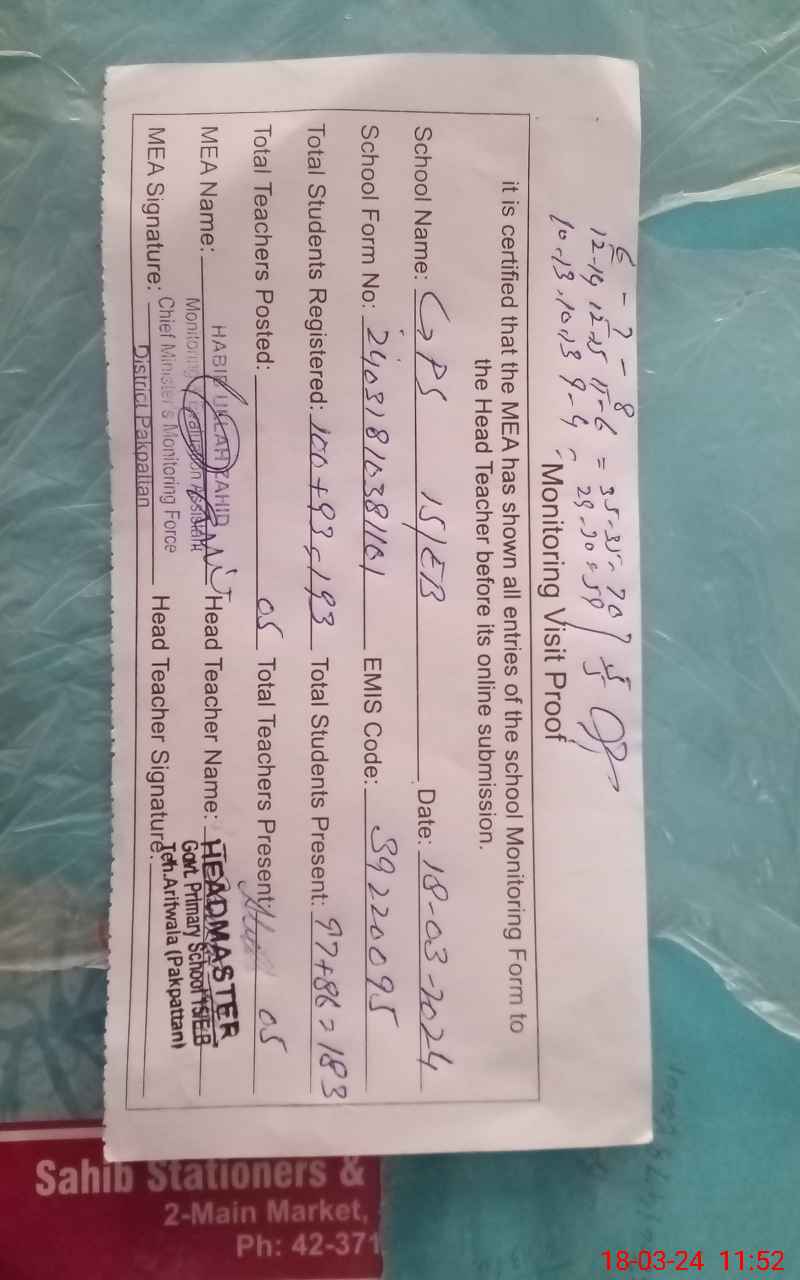 6 - 7 - 8
12-14 12-15 11-6 = 35-35=70
10-13, 10-13 9-4 = 29-30=59
Monitoring Visit Proof
it is certified that the MEA has shown all entries of the school Monitoring Form to
the Head Teacher before its online submission.
School Name: GPS 15/EB Date: 18-03-2024
School Form No: EMIS Code: 39220095
Total Students Registered: 100+93=193 Total Students Present: 97+86=183
Total Teachers Posted: 05 Total Teachers Present: 05
MEA Name: HABIB ULLAH ZAHID Head Teacher Name: HEADMASTER
Monitoring Evaluation Assistant Govt. Primary School 15/EB
MEA Signature: Chief Minister's Monitoring Force Head Teacher Signature: Teh. Arifwala (Pakpattan)
District Pakpattan
Sahib Stationers &
2-Main Market,
Ph: 42-371
18-03-24 11:52